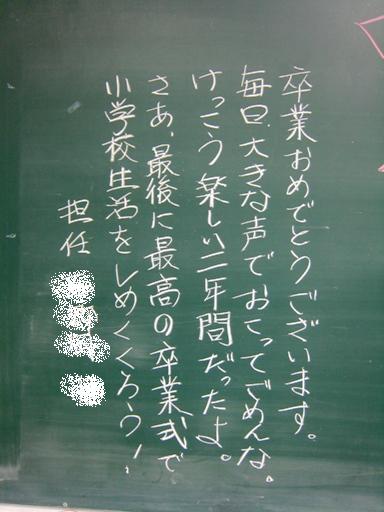 卒業おめでとうございます。
毎日、大きな声でおこってごめんな。
けっこう楽しい二年間だったよ。
さあ、最後に最高の卒業式で
小学校生活をしめくくろう！
担任